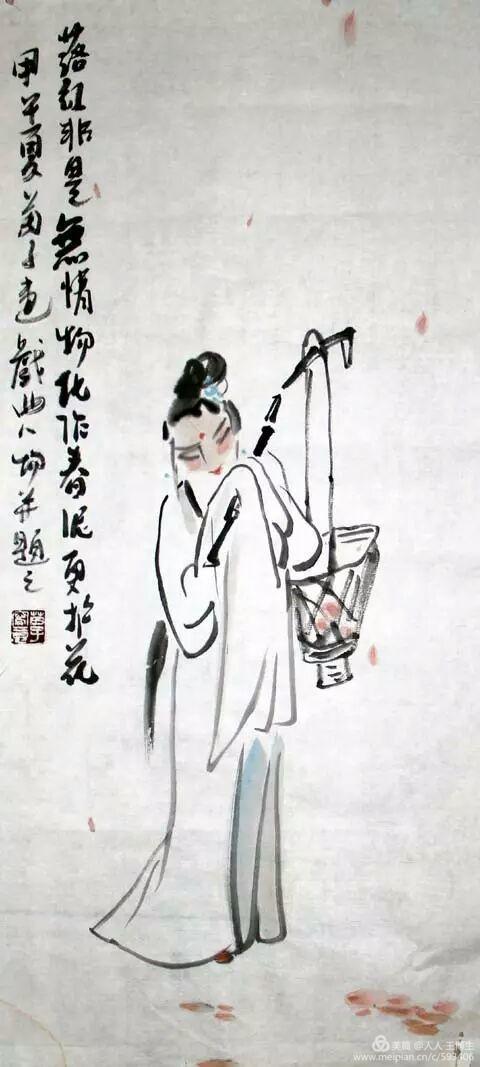 落红非是無情物化作春泥更护花
甲午夏子画戲曲人物并題之
美篇 @人人 王博生
www.meipian.cn/c/593406